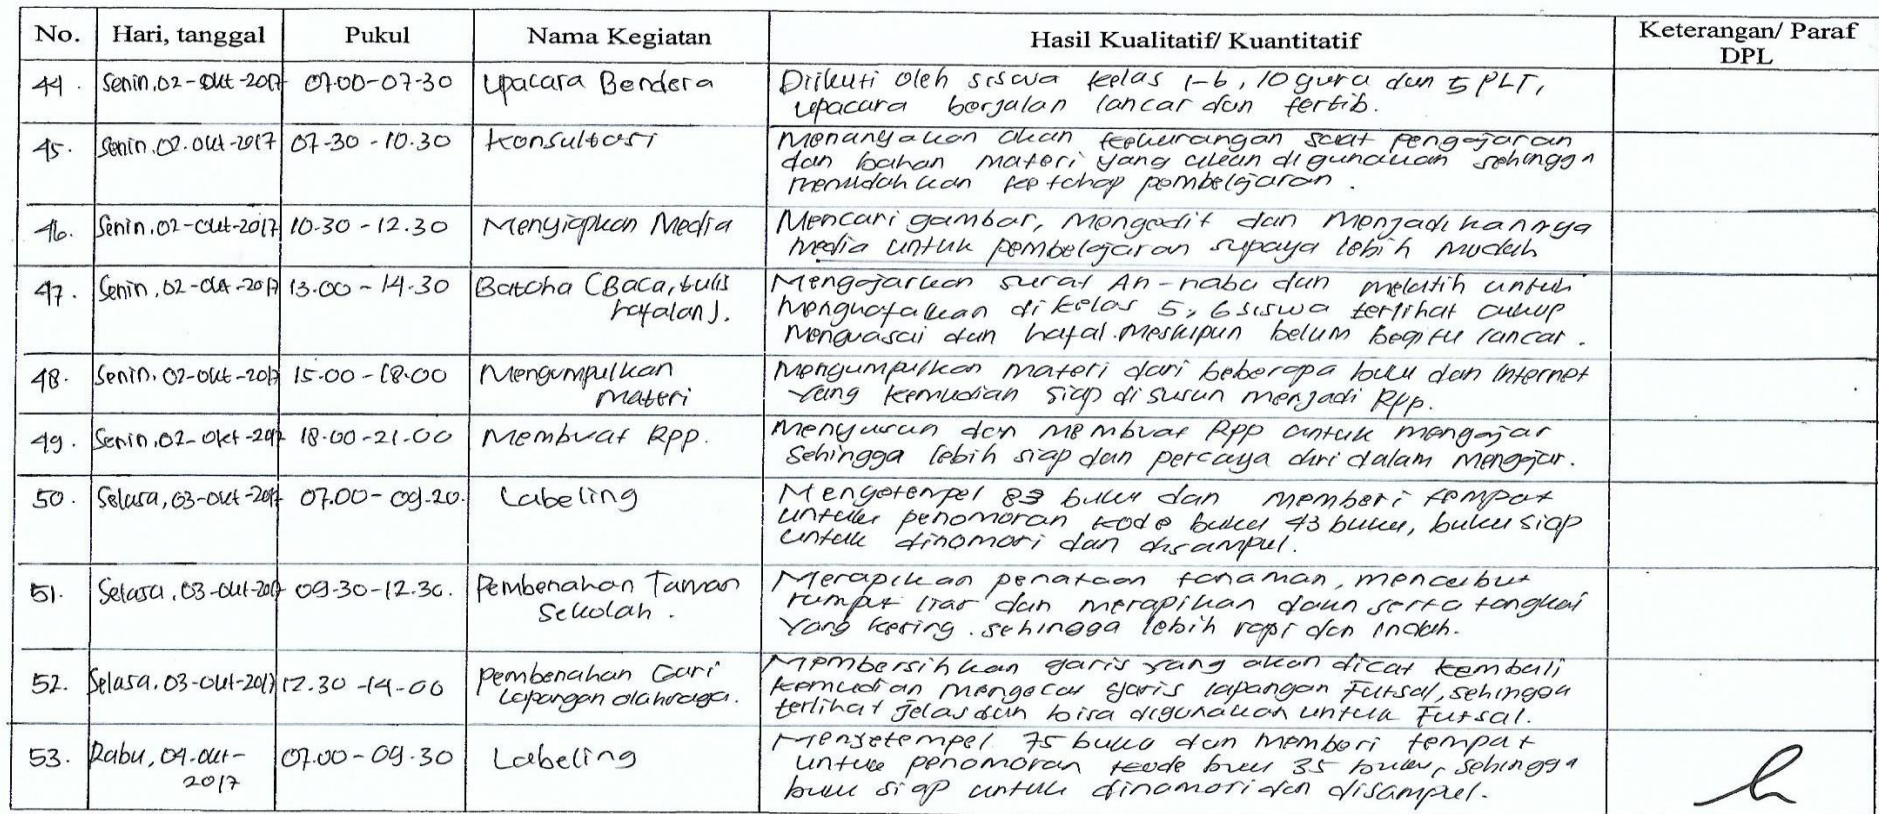 No. Hari, tanggal Pukul Nama Kegiatan Hasil Kualitatif/ Kuantitatif Keterangan/ Paraf
DPL
44. Senin, 02-Okt-2017 07.00-07.30 Upacara Bendera Diikuti oleh siswa kelas 1-6, 10 guru dan 5 PLT,
upacara berjalan lancar dan tertib.
45. Senin, 02-Okt-2017 07.30-10.30 Konsultasi Menanyakan akan kekurangan saat pengajaran
dan bahan materi yang akan digunakan sehingga
memudahkan pembelajaran.
46. Senin, 02-Okt-2017 10.30-12.30 Menyiapkan Media Mencari gambar, mengedit dan menjadikannya
media untuk pembelajaran supaya lebih mudah
47. Senin, 02-Okt-2017 13.00-14.30 Batcha (Baca, tulis Mengajarkan surat An-naba dan melatih untuk
hafalan). menghafalkan di kelas 5, 6 siswa terlihat cukup
menguasai dan hafal meskipun belum begitu lancar.
48. Senin, 02-Okt-2017 15.00-18.00 Mengumpulkan Mengumpulkan materi dari beberapa buku dan internet
materi yang kemudian siap disusun menjadi RPP.
49. Senin, 02-Okt-2017 18.00-21.00 Membuat RPP. Menyusun dan membuat RPP untuk mengajar
sehingga lebih siap dan percaya diri dalam mengajar.
50. Selasa, 03-Okt-2017 07.00-09.20. Labeling 83 buku dan memberi tempat
untuk penomoran kode buku 43 buku, buku siap
untuk dinomori dan disampul.
51. Selasa, 03-Okt-2017 09.30-12.30. Pembenahan Taman Merapikan penataan tanaman, mencabut
Sekolah. rumput liar dan merapikan daun serta tangkai
yang kering. sehingga lebih rapi dan indah.
52. Selasa, 03-Okt-2017 12.30-14.00 Pembenahan Gari Membersihkan garis yang akan dicat kembali
Lapangan olahraga. kemudian mengecat garis lapangan Futsal, sehingga
terlihat jelas dan bisa digunakan untuk Futsal.
53. Rabu, 04-Okt- 07.00-09.30 Labeling Menyetempel 75 buku dan memberi tempat
2017 untuk penomoran kode buku 35 buku, sehingga
buku siap untuk dinomori dan disampul.